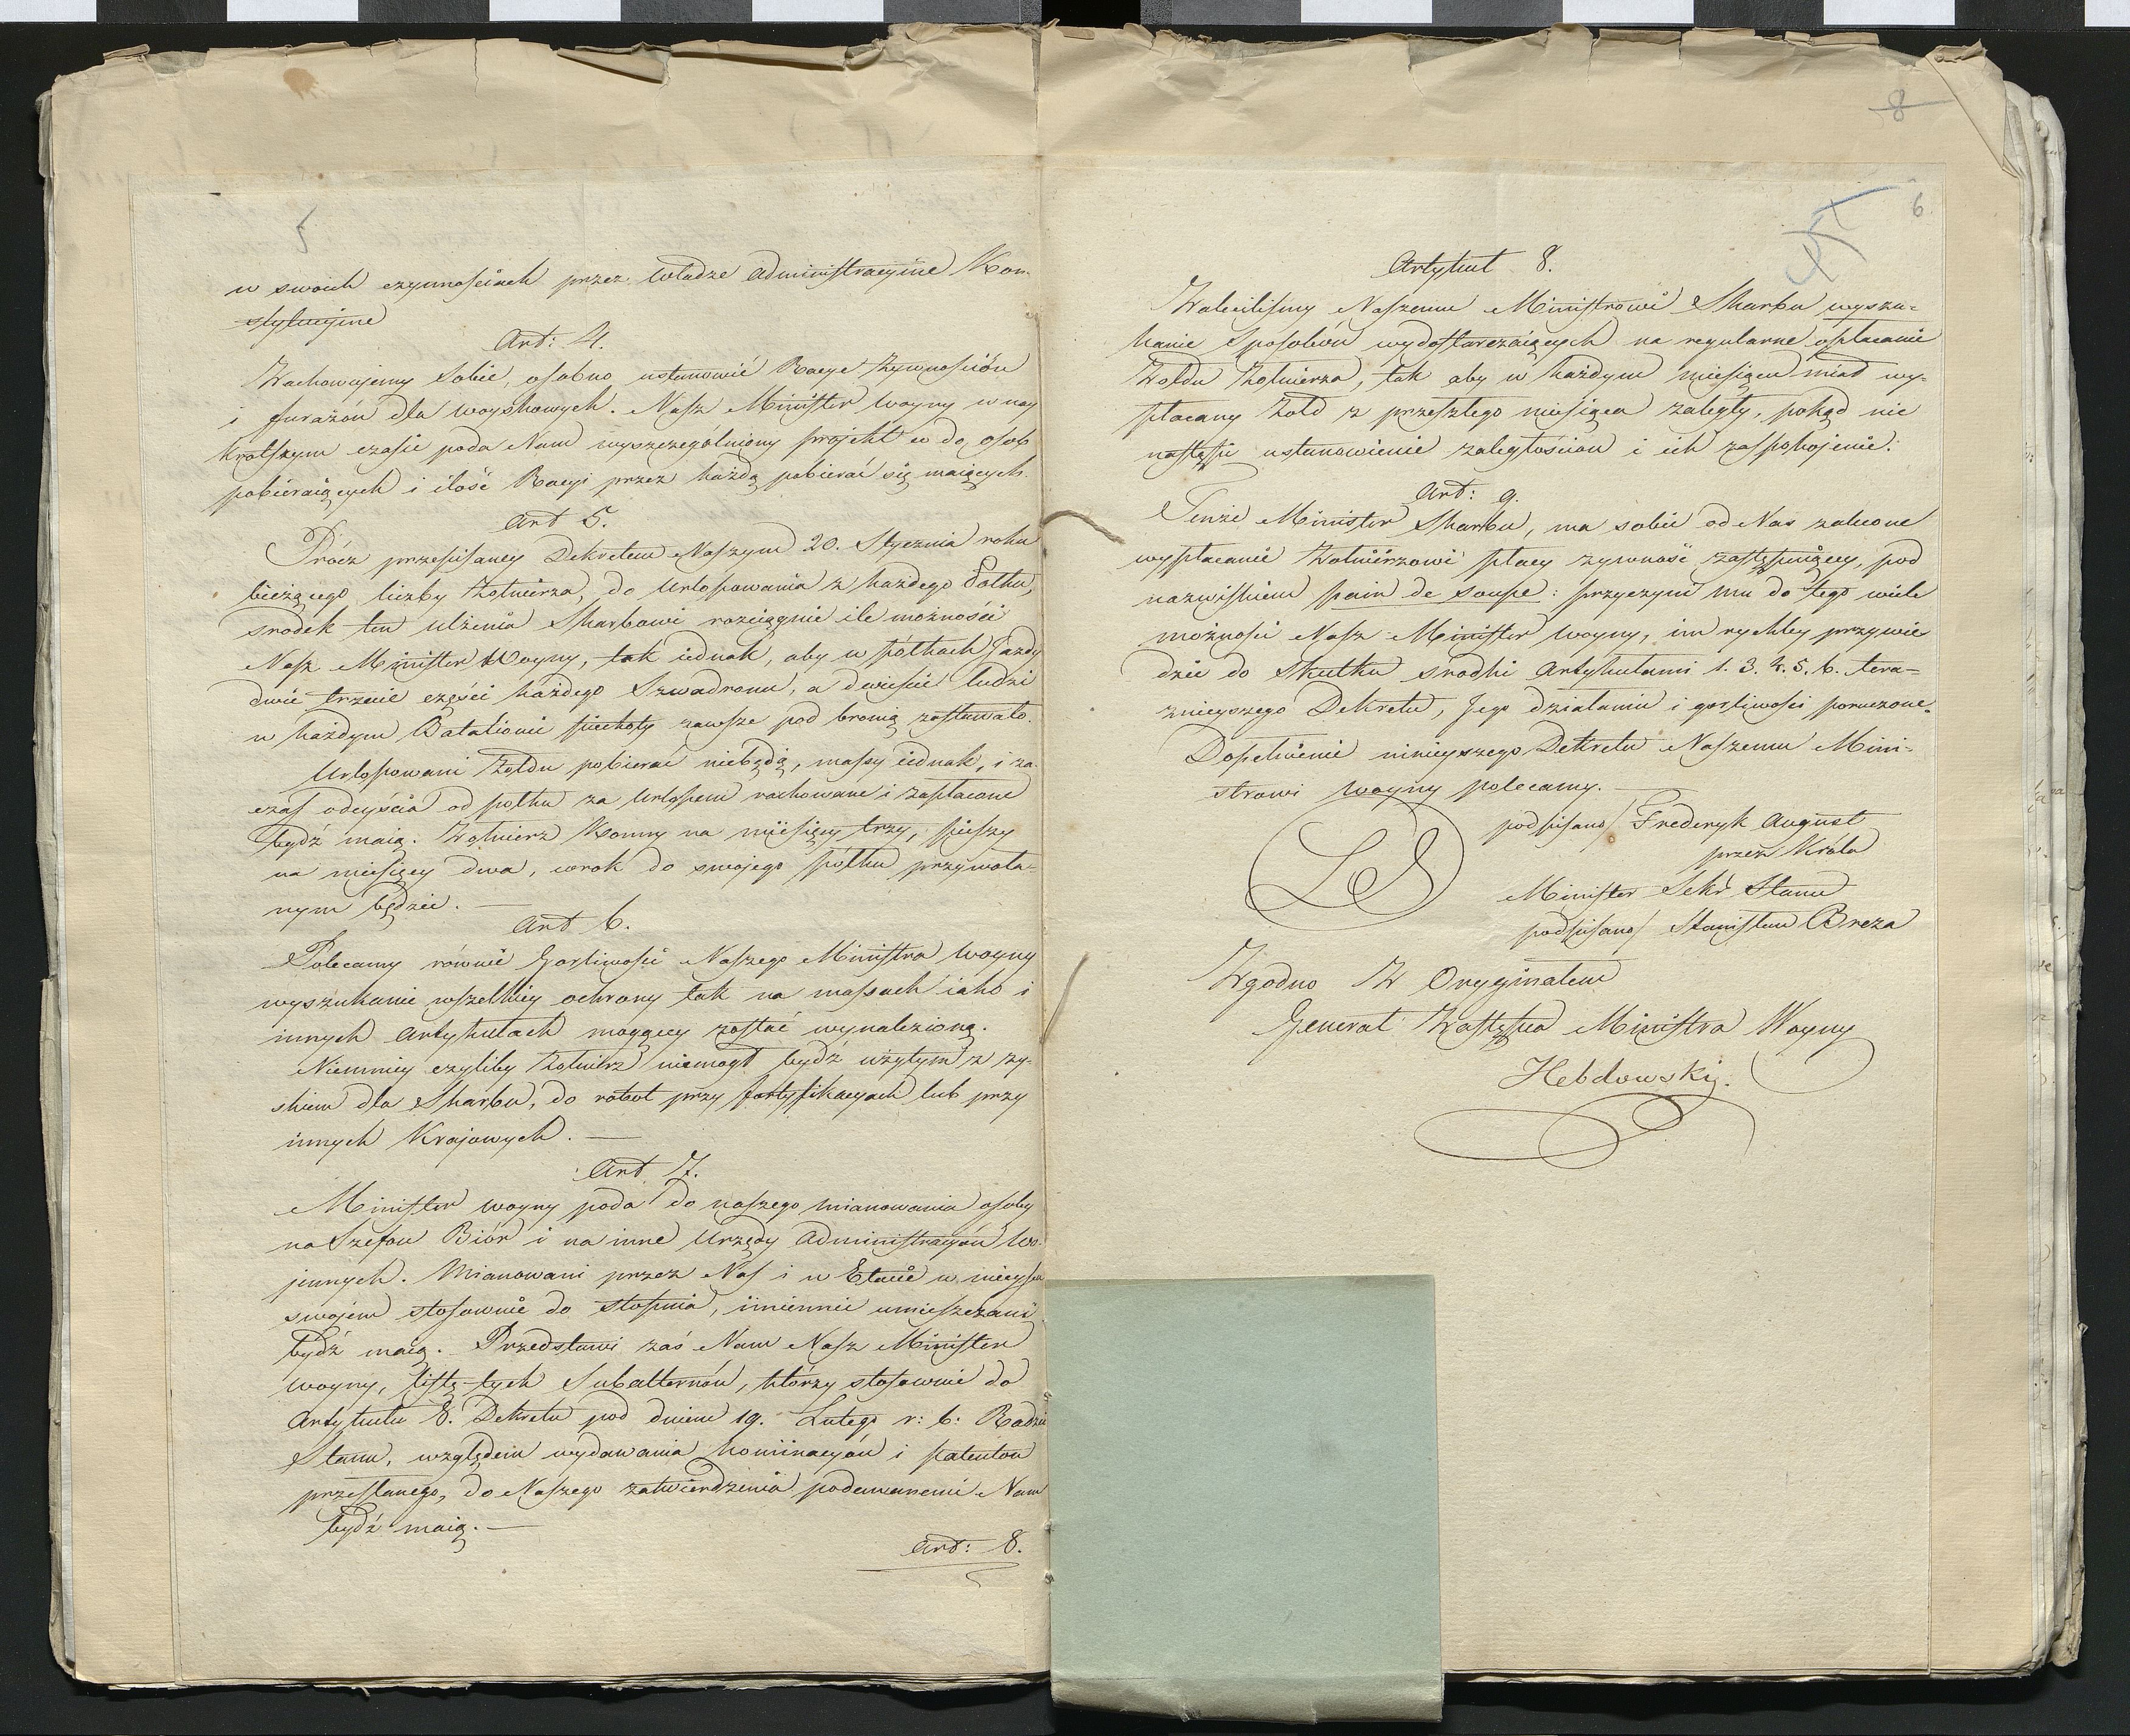 5
w swoich czynnościach przez Władze Administracyine Kon-
stytucyine
Art: 4.
Zachowujemy Sobie, osobno ustanowić Racye żywnościów
i furażów dla woyskowych. Nasz Minister woyny w nay
krotszym czasie poda Nam wyszczególniony projekt co do osob
pobieraiących i ilość Racyi przez każdą pobierać się maiących.
Art 5.
Prócz przepisaney Dekretem Naszym 20. Stycznia roku
bieżącego liczby żołnierza, do urlopowania z każdego Połku,
srodek ten ulżenia Skarbowi rozciągnie ile możności
Nasz Minister Woyny, tak iednak, aby w połkach Jazdy
dwie trzecie części każdego Szwadronu, a dwieście ludzi
w każdym Batalionie piechoty zawsze pod bronią zostawało.
Urlopowani żołdu pobierać niebędą, massy iednak, i za
czas odeyścia od połku za urlopem rachowane i zapłacone
bydź maią. Żołnierz Konny na miesięcy trzy, pieszy
na miesięcy dwa, w rok do swojego połku przywoła-
nym będzie. —
Art 6.
Polecamy równie Gorliwości Naszego Ministra woyny
wyszukanie wszelkiey ochrony tak na massach iako i
innych artykułach mogącey zostać wynalezioną.
Niemniey czyliby żołnierz niemógł bydź użytym z zy-
skiem dla Skarbu, do robot przy fortyfikacyach lub przy
innych Krajowych. —
Art 7.
Minister woyny poda do naszego mianowania osoby
na Szefów Biór i na inne Urzędy Administracyów Wo-
jennych. Mianowani przez Nas i w Etacie w mieyscu
swojem stosownie do stopnia, imiennie umieszczani
bydź maią. Przedstawi zaś Nam Nasz Minister
woyny, listę tych Subalternów, którzy stosownie do
Artykułu 8. Dekretu pod dniem 19. Lutego r: b: Radzie
Stanu, względem wydawania nominacyów i patentów
przesłanego, do Naszego zatwierdzenia podawanemi Nam
bydź maią. —
Art: 8.
8
6.
Artykuł 8.
Zaleciliśmy Naszemu Ministrowi Skarbu wyszu-
kanie Sposobów wydostarczaiących na regularne opłacanie
Żołdu Żołnierza, tak aby w każdym miesiącu miał wy-
płacany Żołd z przeszłego miesiąca zaległy, pokąd nie
nastąpi ustanowienie zaległościow i ich zaspokojenie.
Art: 9.
Tenże Minister Skarbu, ma sobie od Nas zalecone
wypłacanie Żołnierzowi płacy żywność zastępuiącey, pod
nazwiskiem pain de soupe: przyczyni mu do tego wiele
możności Nasz Minister woyny, im rychley przywie
dzie do skutku srodki Artykułami 1. 3. 4. 5. 6. tera-
znieyszego Dekretu, Jego działaniu i gorliwości poruczone.
Dopełnienie ninieyszego Dekretu Naszemu Mini-
strowi woyny polecamy. —
podpisano/ Frederyk August
przez Króla
LS
Minister Sekr Stanu
podpisano/ Stanisław Breza
Zgodno Z Oryginałem
Generał Zastępca Ministra Woyny
Hebdowski.